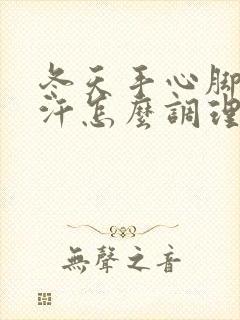 冬天手心腳
汗怎麼調理
無聲之音